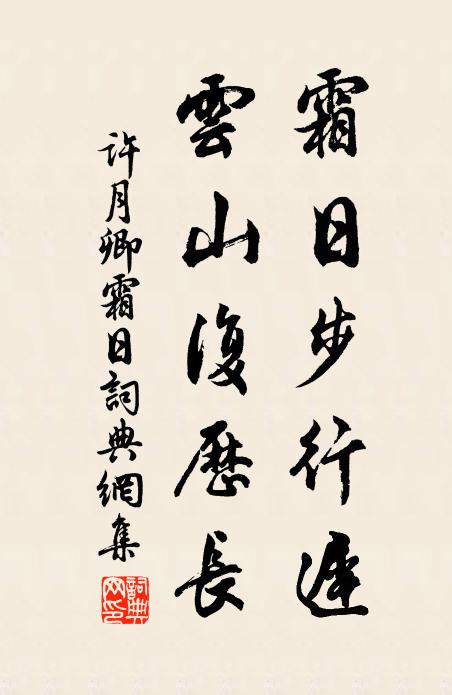 霜日步行遲
雲山復歷長
許月卿霜日詞典網集
詞典網印